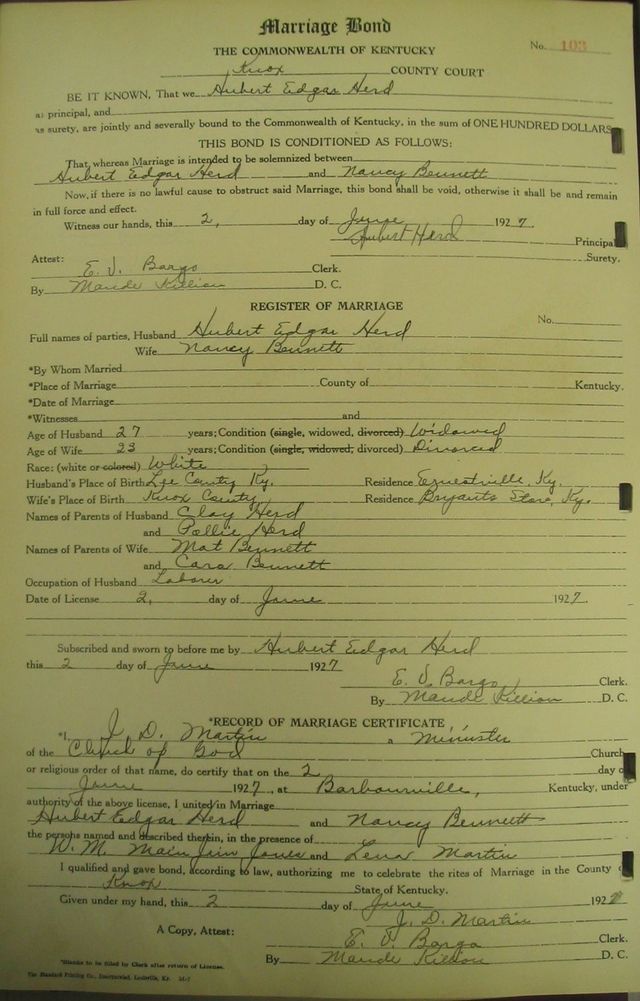 Marriage Bond
THE COMMONWEALTH OF KENTUCKY
No. 103
Knox COUNTY COURT
BE IT KNOWN, That we Hubert Edgar Herd
as principal, and
as surety, are jointly and severally bound to the Commonwealth of Kentucky, in the sum of ONE HUNDRED DOLLARS
THIS BOND IS CONDITIONED AS FOLLOWS:
That, whereas Marriage is intended to be solemnized between
Hubert Edgar Herd and Nancy Bennett
Now, if there is no lawful cause to obstruct said Marriage, this bond shall be void, otherwise it shall be and remain
in full force and effect.
Witness our hands, this 2, day of June 1927.
Hubert Herd Principal
Surety.
Attest:
E. V. Bargo Clerk.
By Maude Killion D. C.
REGISTER OF MARRIAGE
No.
Full names of parties, Husband Hubert Edgar Herd
Wife Nancy Bennett
*By Whom Married
*Place of Marriage County of Kentucky.
*Date of Marriage
*Witnesses and
Age of Husband 27 years; Condition (single, widowed, divorced) Widowed
Age of Wife 23 years; Condition (single, widowed, divorced) Divorced
Race: (white or colored) White
Husband's Place of Birth Lee County Ky. Residence Ky.
Wife's Place of Birth Knox County, Residence Bryants Store, Ky.
Names of Parents of Husband Clay Herd
and Pollie Herd
Names of Parents of Wife Mat Bennett
and Cara Bennett
Occupation of Husband Laborer
Date of License 2, day of June 1927.
Subscribed and sworn to before me by Hubert Edgar Herd
this 2 day of June 1927
E. V. Bargo, Clerk.
By Maude Killion D. C.
*RECORD OF MARRIAGE CERTIFICATE
*I, J. D. Martin a Minister
of the Church of God Church
or religious order of that name, do certify that on the 2 day o
June 1927, at Barbourville, Kentucky, under
authority of the above license, I united in Marriage
Hubert Edgar Herd and Nancy Bennett
the persons named and described therein, in the presence of
W. M. Main Jim Jones and Lena Martin
I qualified and gave bond, according to law, authorizing me to celebrate the rites of Marriage in the County
Knox State of Kentucky.
Given under my hand, this 2 day of June 1927
J. D. Martin
A Copy, Attest:
E. V. Bargo Clerk.
By Maude Killion D. C.
*Blanks to be filled by Clerk after return of License.
The Standard Printing Co., Incorporated, Louisville, Ky.